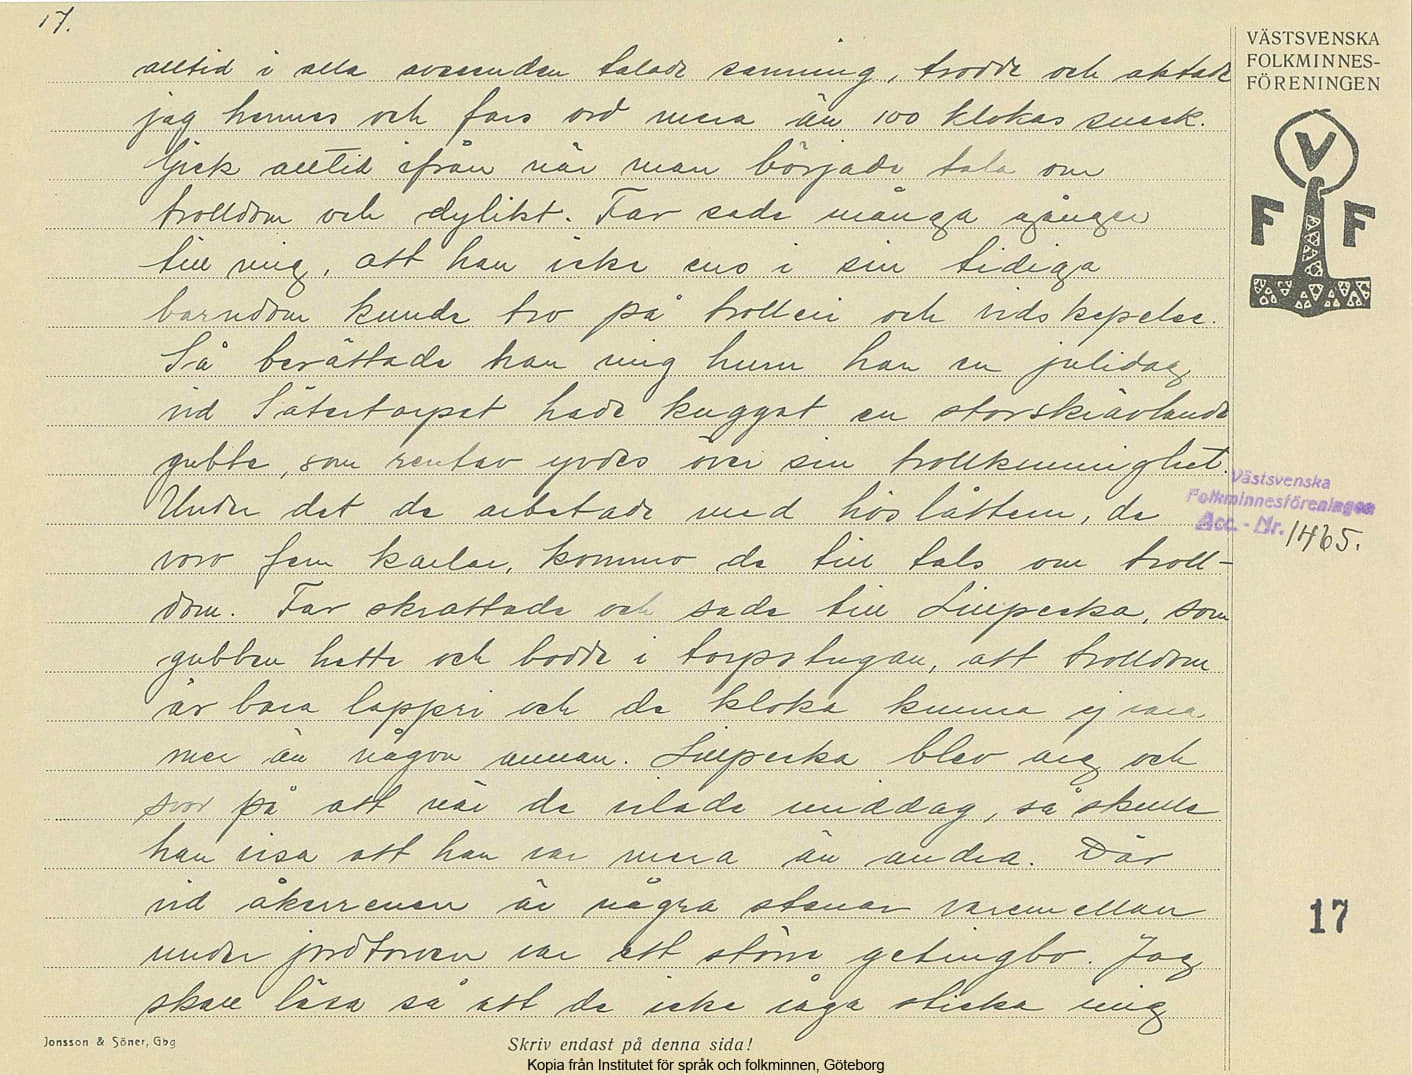 17.
alltid i alla avseenden talade sanning, trodde och aktade
jag hennes och fars ord mera än 100 klokas snack.
Gick alltid ifrån när man började tala om
trolldom och dylikt. Far sade många gånger
till mig, att han icke ens i sin tidiga
barndom kunde tro på trolleri och vidskepelse.
Så berättade han mig huru han en julidag
vid Sätertorpet hade kuggat en storskrävlande
gubbe, som rentav yvdes över sin trollkunnighet.
Under det de arbetade med höslåttern, de
voro fem karlar, kommo de till tals om troll-
dom. Far skrattade och sade till Lillpecka, som
gubben hette och bodde i torpstugan, att trolldom
är bara lappri och de kloka kunna ej vara
mer än någon annan. Lillpecka blev arg och
svor på att när de vilade middag, så skulle
han visa att han var mera än andra. Där
vid åkerrenen är några stenar varemellan
under jordtorven var ett större getingbo. Jag
skall läsa så att de icke våga sticka mig
VÄSTSVENSKA
FOLKMINNES-
FÖRENINGEN
V
F F
Västsvenska
Folkminnesföreningen
Acc. - Nr. 1465.
17
Jonsson & Söner, Gbg
Skriv endast på denna sida!
Kopia från Institutet för språk och folkminnen, Göteborg